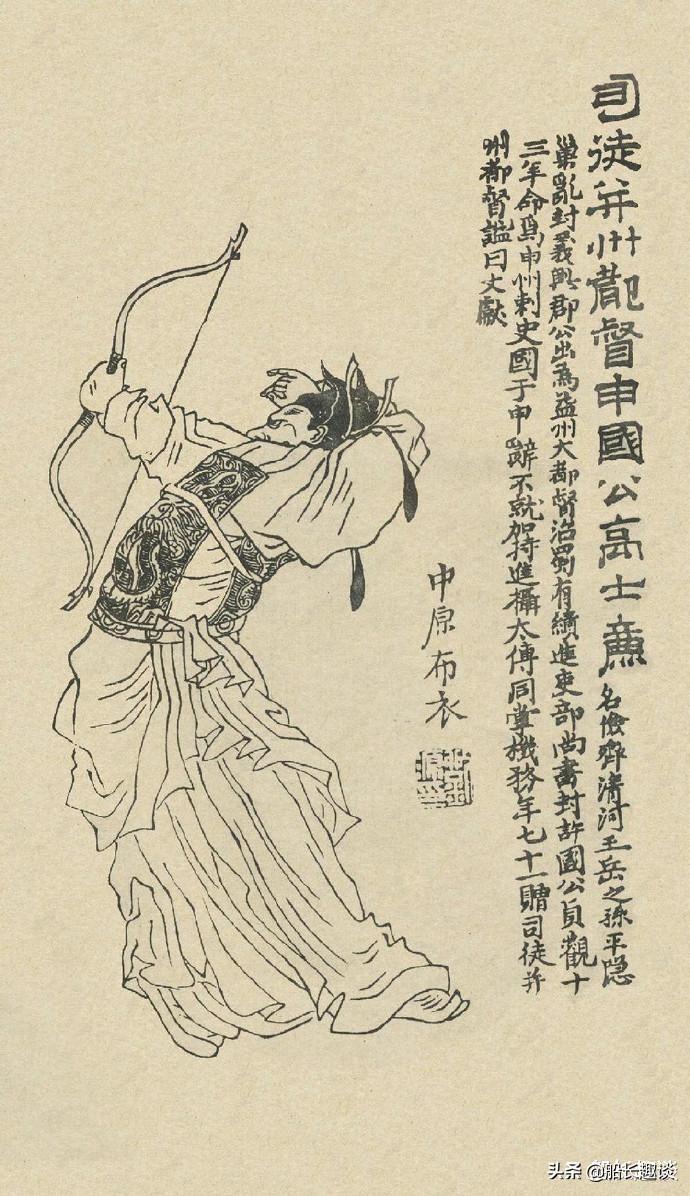 司徒并州都督申國公高士廉 名儉齊清河王岳之孫平隐
巢亂封義興郡公出為益州大都督治蜀有績進吏部尚書封許國公貞觀十
三年命爲申州刺史國于申辭不就加持進攝太傅同掌機務年七十一贈司徒并
州都督諡曰文獻
中原布衣
头条 @船长趣谈